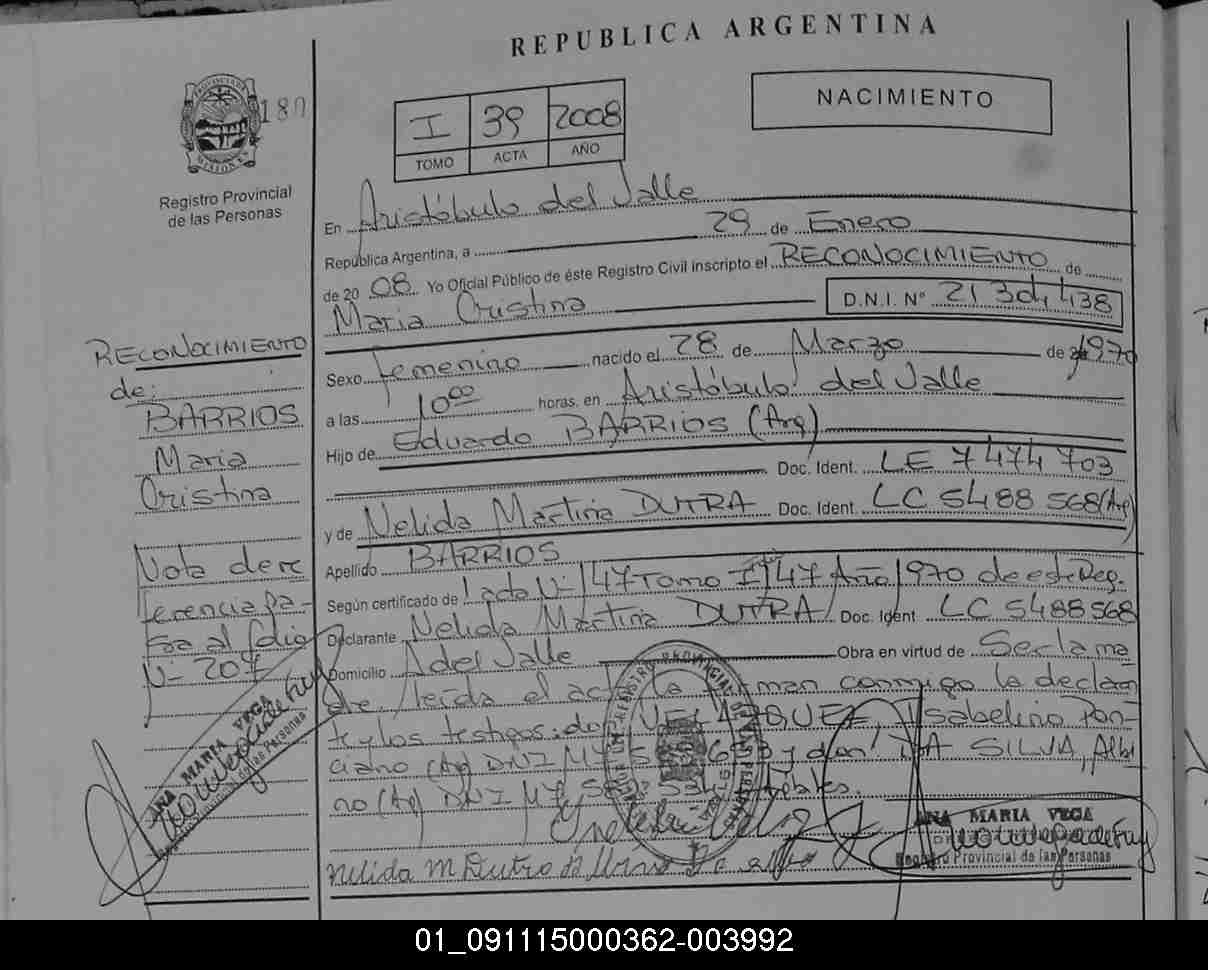 REPUBLICA ARGENTINA
180
PROVINCIA DE MISIONES
Registro Provincial
de las Personas
I 39 2008
TOMO ACTA AÑO
NACIMIENTO
En Aristóbulo del Valle
República Argentina, a 29 de Enero
de 2008 Yo Oficial Público de éste Registro Civil inscripto el RECONOCIMIENTO de
Maria Cristina D.N.I. Nº 21 304 438
Sexo femenino nacido el 28 de Marzo de 1970
a las 10:00 horas. en Aristóbulo del Valle
Hijo de Eduardo BARRIOS (Arg)
Doc. Ident. LE 7 474 703
y de Nelida Martina DUTRA Doc. Ident. LC 5488 568 (Arg)
Apellido BARRIOS
Según certificado de 1 acta Nº 147 Tomo I 147 Año 1970 de este Reg.
Declarante Nelida Martina DUTRA Doc. Ident LC 5488568
Domicilio A del Valle Obra en virtud de Ser la ma
dre, leída el acta la firman conmigo la declaran
te y los testigos: don VELAZQUEZ, Isabelino Pon-
ciano (Arg) DNI M 7 5 653 y don DA SILVA, Albi
no (Arg) DNI M 7 534
Nelida M Dutra D
ANA MARIA VEGA
Registro Provincial de las Personas
RECONOCIMIENTO
de:
BARRIOS
Maria
Cristina
Nota de re
ferencia pa-
sa al folio
Nº 207
ANA MARIA VEGA
Provincial de las Personas
01_091115000362-003992